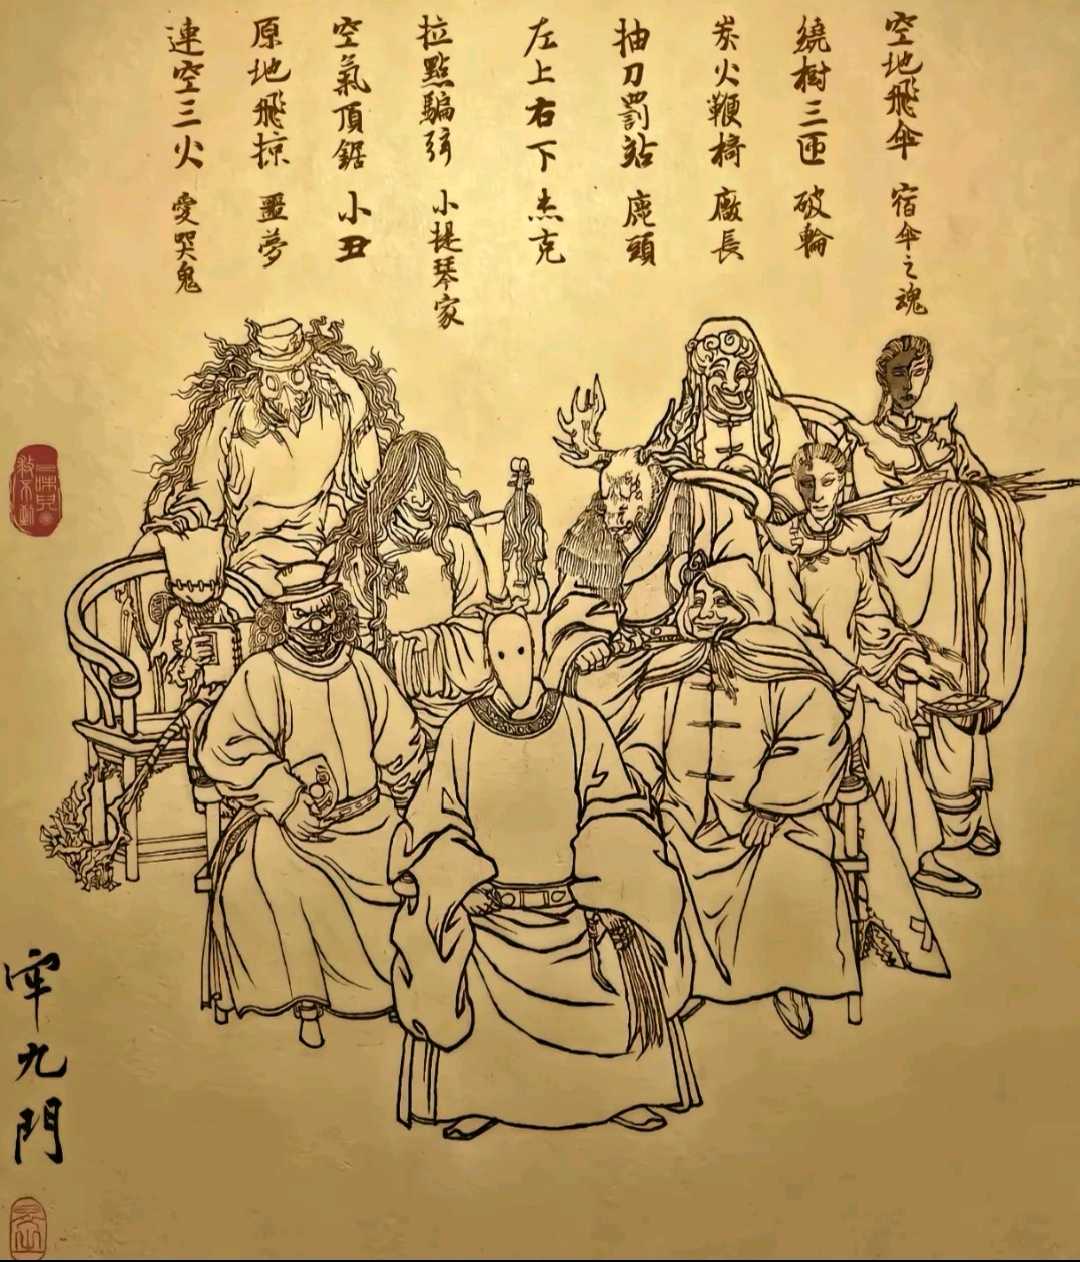 空地飛傘 宿傘之魂
繞樹三匝 破輪
炭火鞭椅 廠長
抽刀罰站 鹿頭
左上右下 杰克
拉點騙弱 小提琴家
空氣頂鋸 小丑
原地飛掠 噩夢
連空三火 愛哭鬼
牢九門